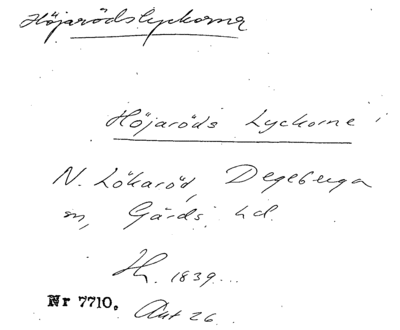 Höjarödslyckorna
Höjaröds Lyckorne
N. Lökaröd, Degeberga
sn, Gärds hd.
Hh. 1839...
Nr 7710. Akt 26